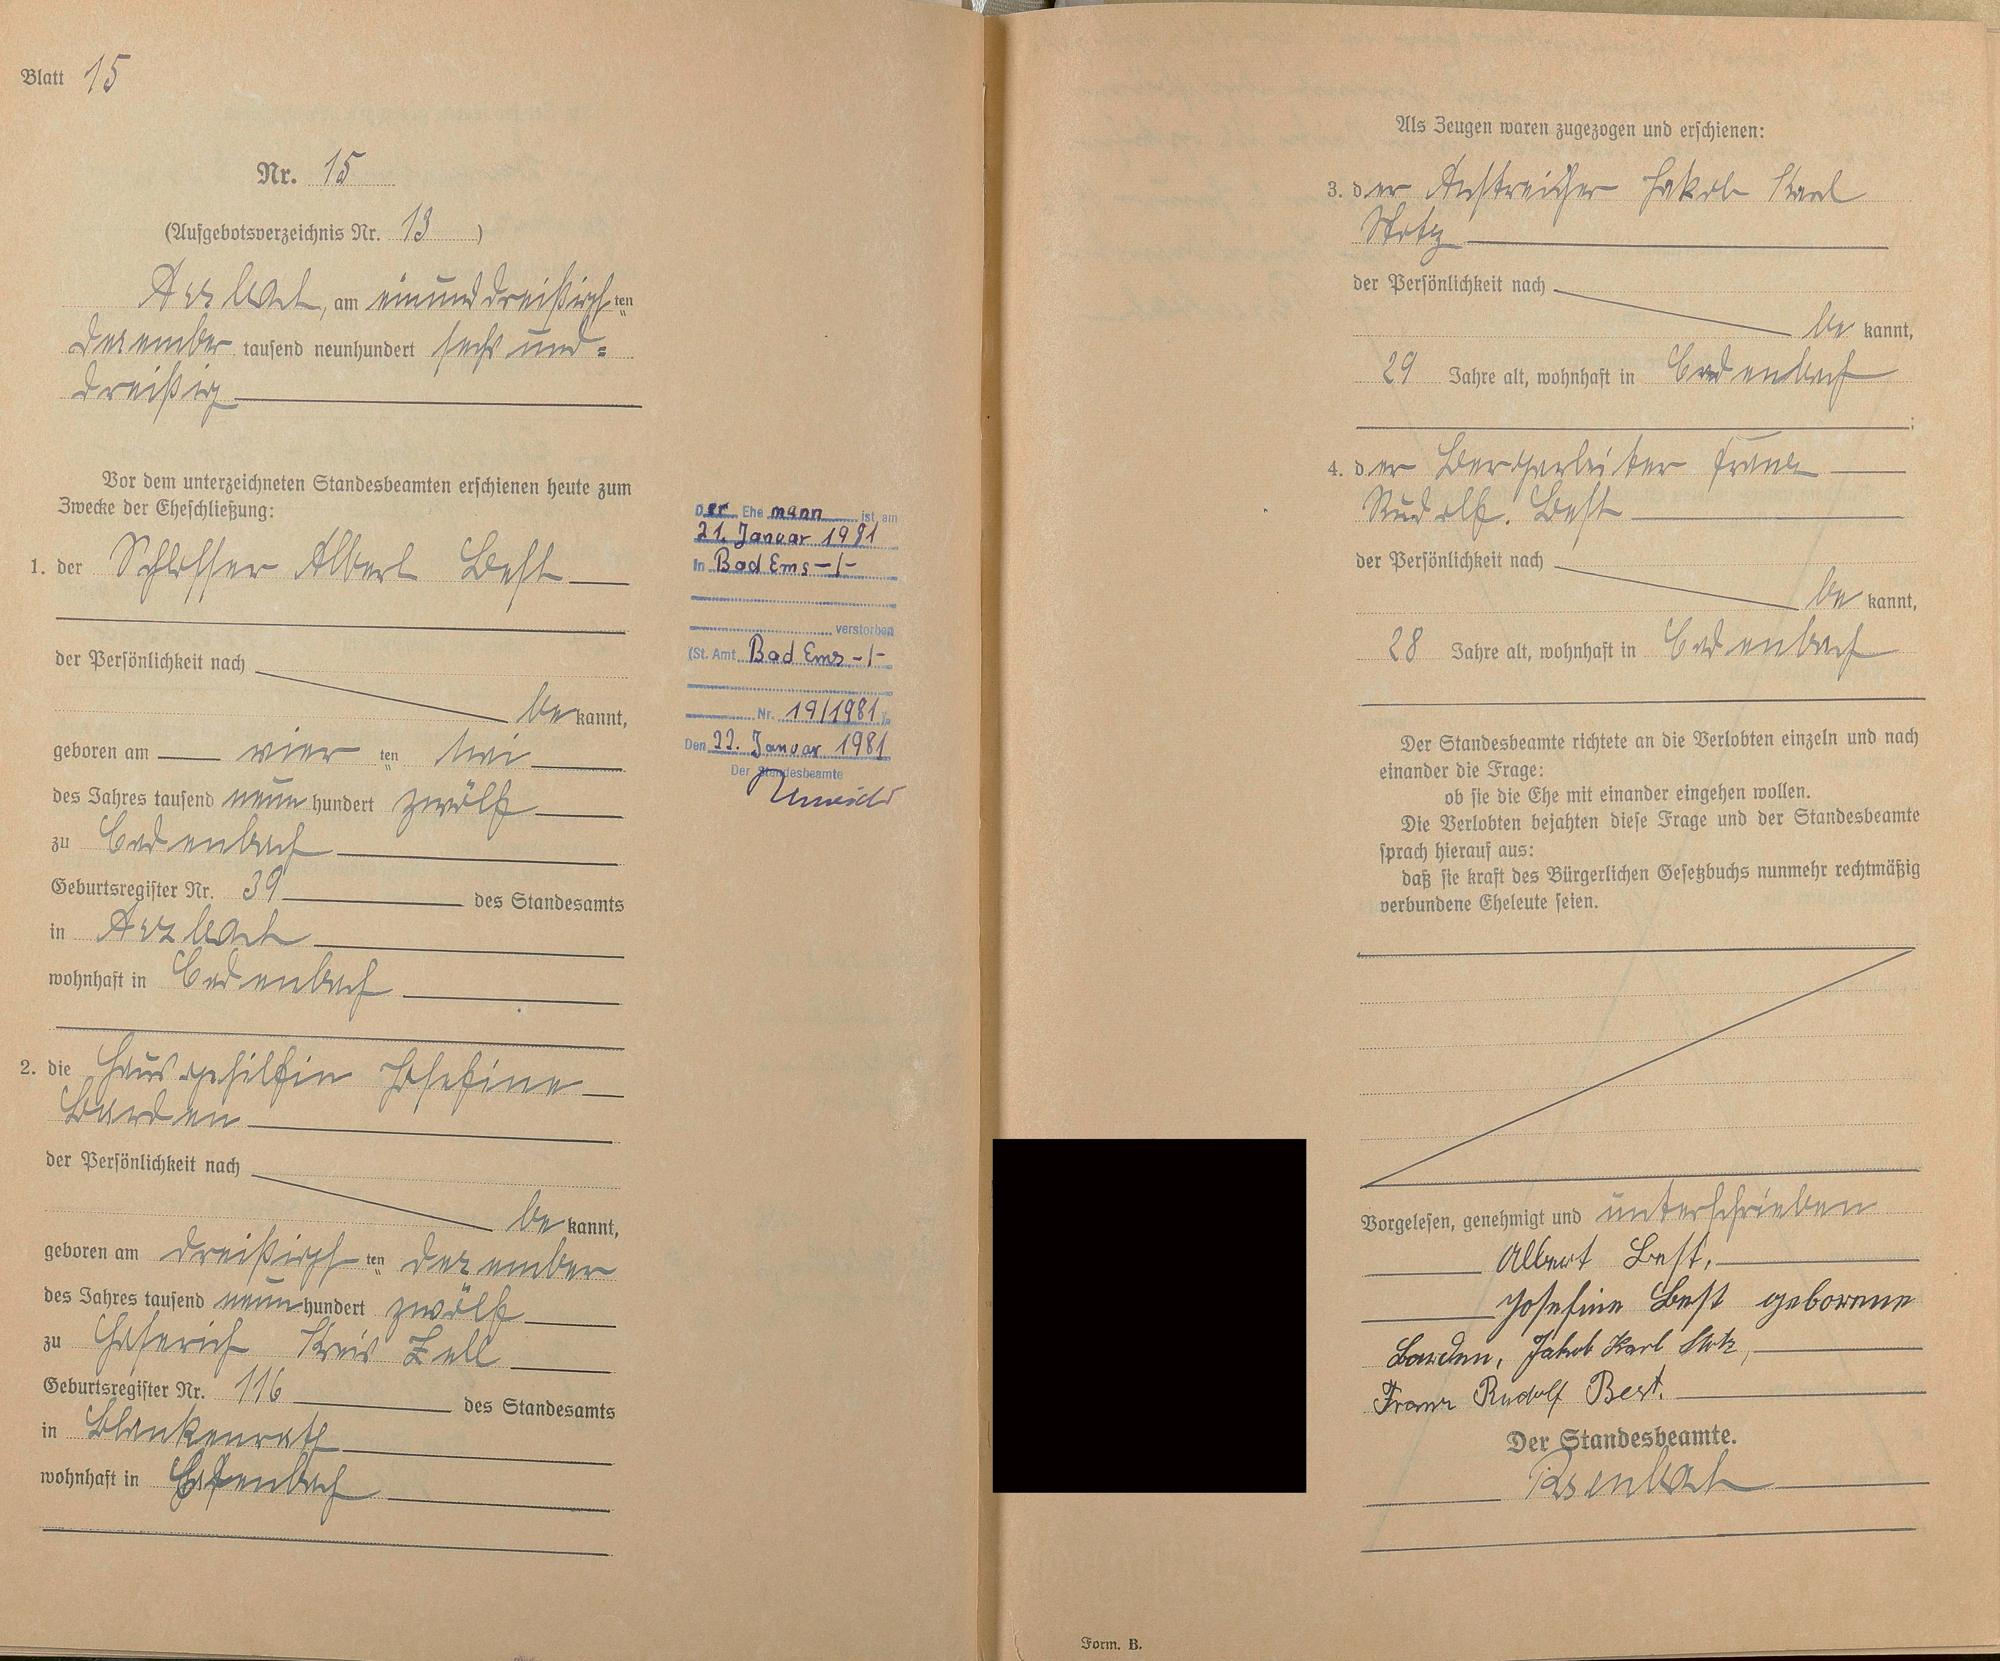 Blatt 15
Nr. 15
(Aufgebotsverzeichnis Nr. 13)
Arzbach, am einunddreißigsten
Dezember tausend neunhundert sechs und=
dreißig
Vor dem unterzeichneten Standesbeamten erschienen heute zum
Zwecke der Eheschließung:
1. der Schlosser Albert Best
der Persönlichkeit nach
be kannt,
geboren am vier ten Mai
des Jahres tausend neun hundert zwölf
zu Cadenbach
Geburtsregister Nr. 39 des Standesamts
in Arzbach
wohnhaft in Cadenbach
2. die Hausgehilfin Josefine
Barden
der Persönlichkeit nach
be kannt,
geboren am dreißigsten Dezember
des Jahres tausend neun hundert zwölf
zu Haserich Kreis Zell
Geburtsregister Nr. 116 des Standesamts
in Blankenrath
wohnhaft in Cadenbach
Der Ehe mann ist am
21. Januar 1981
in Bad Ems -/-
verstorben
(St. Amt Bad Ems -/-
Nr. 19/1981).
Den 22. Januar 1981
Der Standesbeamte
Als Zeugen waren zugezogen und erschienen:
3. der Anstreicher Jakob Karl
Stotz
der Persönlichkeit nach
be kannt,
29 Jahre alt, wohnhaft in Cadenbach
;
4. der Bergarbeiter Franz
Rudolf Best
der Persönlichkeit nach
be kannt,
28 Jahre alt, wohnhaft in Cadenbach
Der Standesbeamte richtete an die Verlobten einzeln und nach
einander die Frage:
ob sie die Ehe mit einander eingehen wollen.
Die Verlobten bejahten diese Frage und der Standesbeamte
sprach hierauf aus:
daß sie kraft des Bürgerlichen Gesetzbuchs nunmehr rechtmäßig
verbundene Eheleute seien.
Vorgelesen, genehmigt und unterschrieben
Albert Best.
Josefine Best geborene
Barden, Jakob Karl Stotz,
Franz Rudolf Best.
Der Standesbeamte.
Form. B.